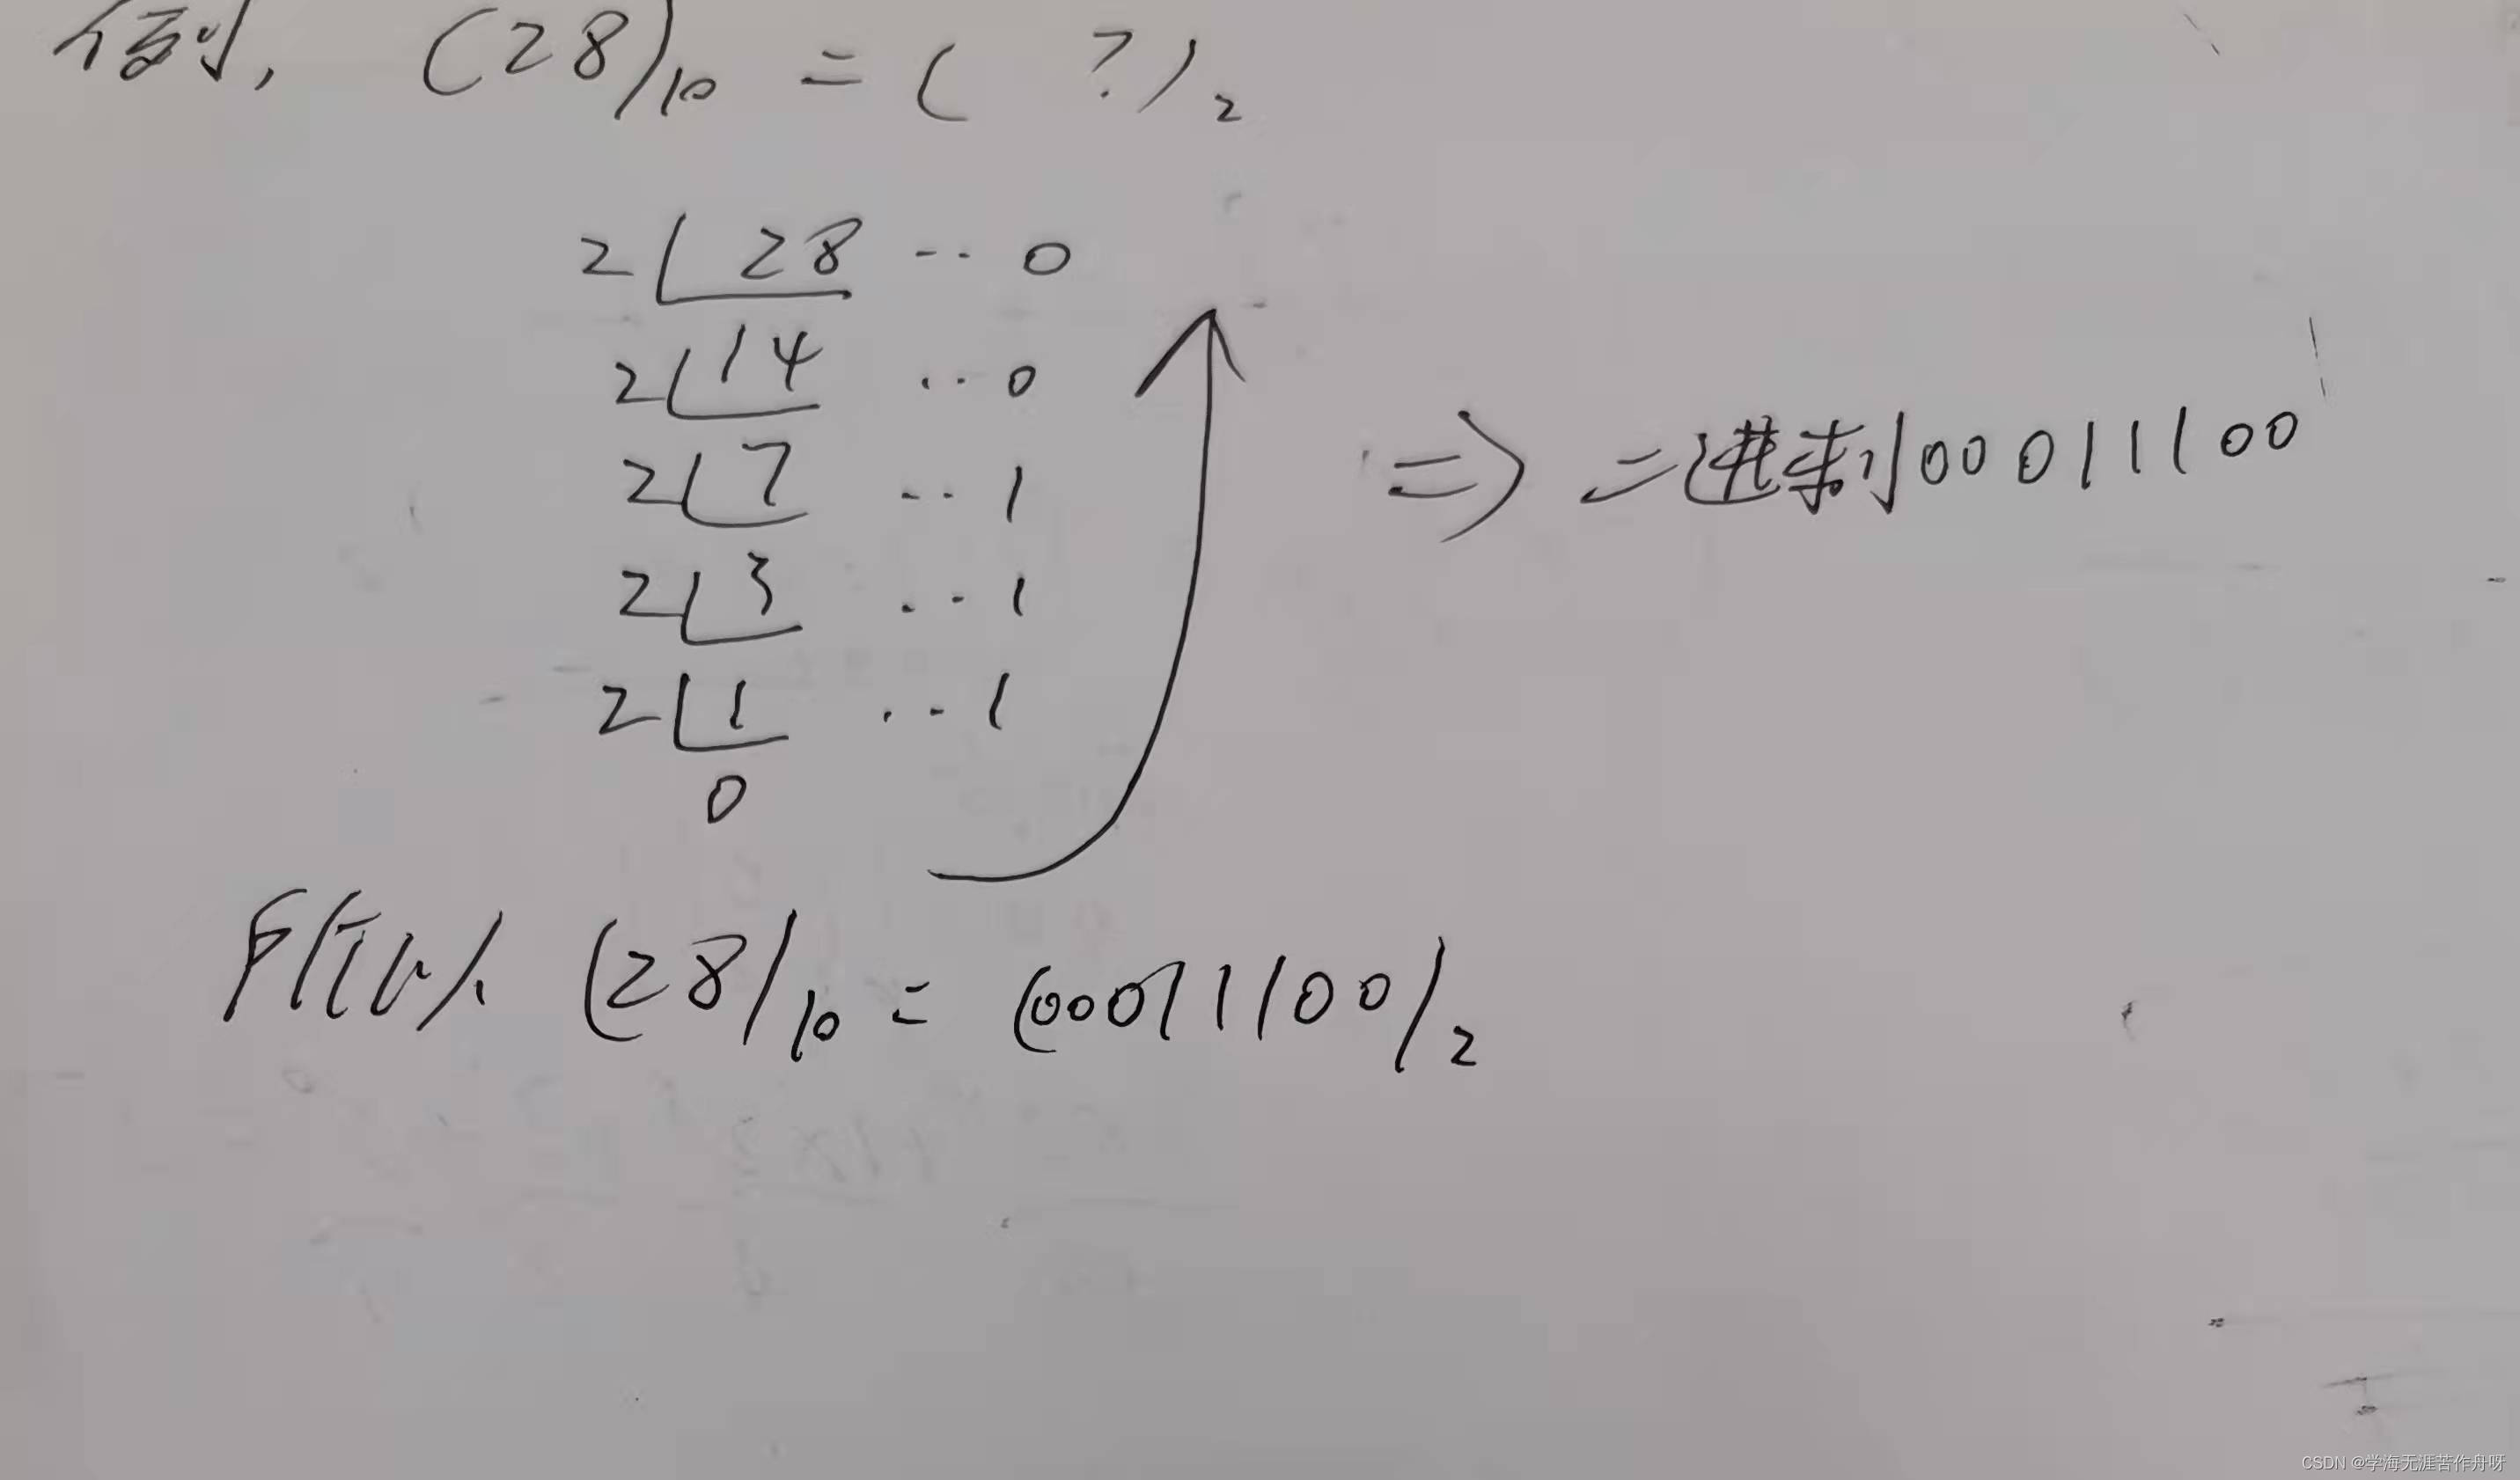 例, (28)₁₀ = ( ? )₂
2 28 ·· 0
2 14 ·· 0
2 7 ·· 1
2 3 ·· 1
2 1 ·· 1
0
⇒ 二进制00011100
所以 (28)₁₀ = (00011100)₂
CSDN @学海无涯苦作舟呀